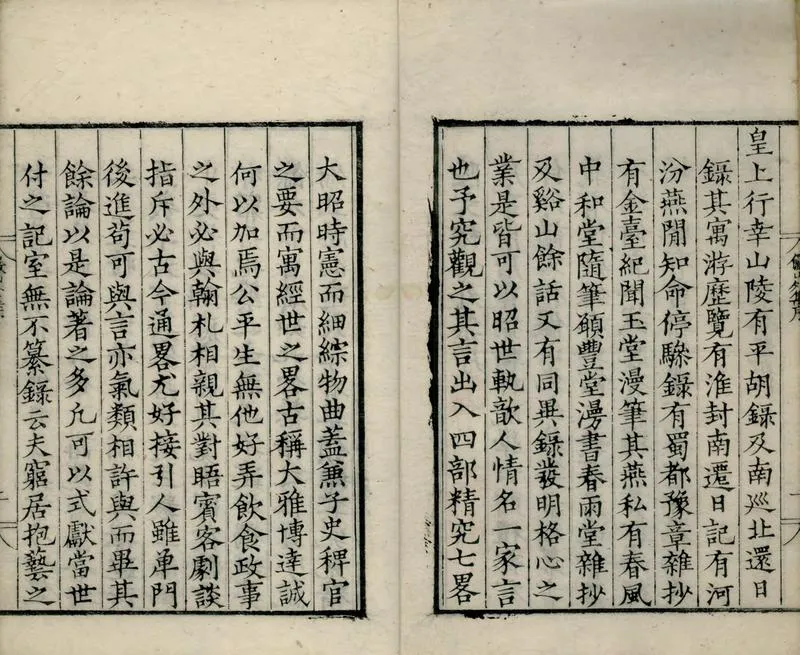 皇上行幸山陵有平胡錄及南巡北還日
錄其寓游歷覽有淮封南還日記有河
汾燕閒知命停驂錄有蜀都豫章雜抄
有金臺紀聞玉堂漫筆其燕私有春風
中和堂隨筆頥豐堂漫書春雨堂雜抄
及谿山餘話又有同異錄發明格心之
業是皆可以昭世軌敨人情名一家言
也予究觀之其言出入四部精究七畧
大昭時憲而細綜物曲蓋兼子史稗官
之要而寓經世之畧古稱大雅博達誠
何以加焉公平生無他好弄飲食政事
之外必與翰札相親其對晤賓客劇談
指斥必古今通畧尤好接引人雖单門
後進苟可與言亦氣類相許與而畢其
餘論以是論著之多凢可以式獻當世
付之記室無不纂錄云夫窮居抱藝之